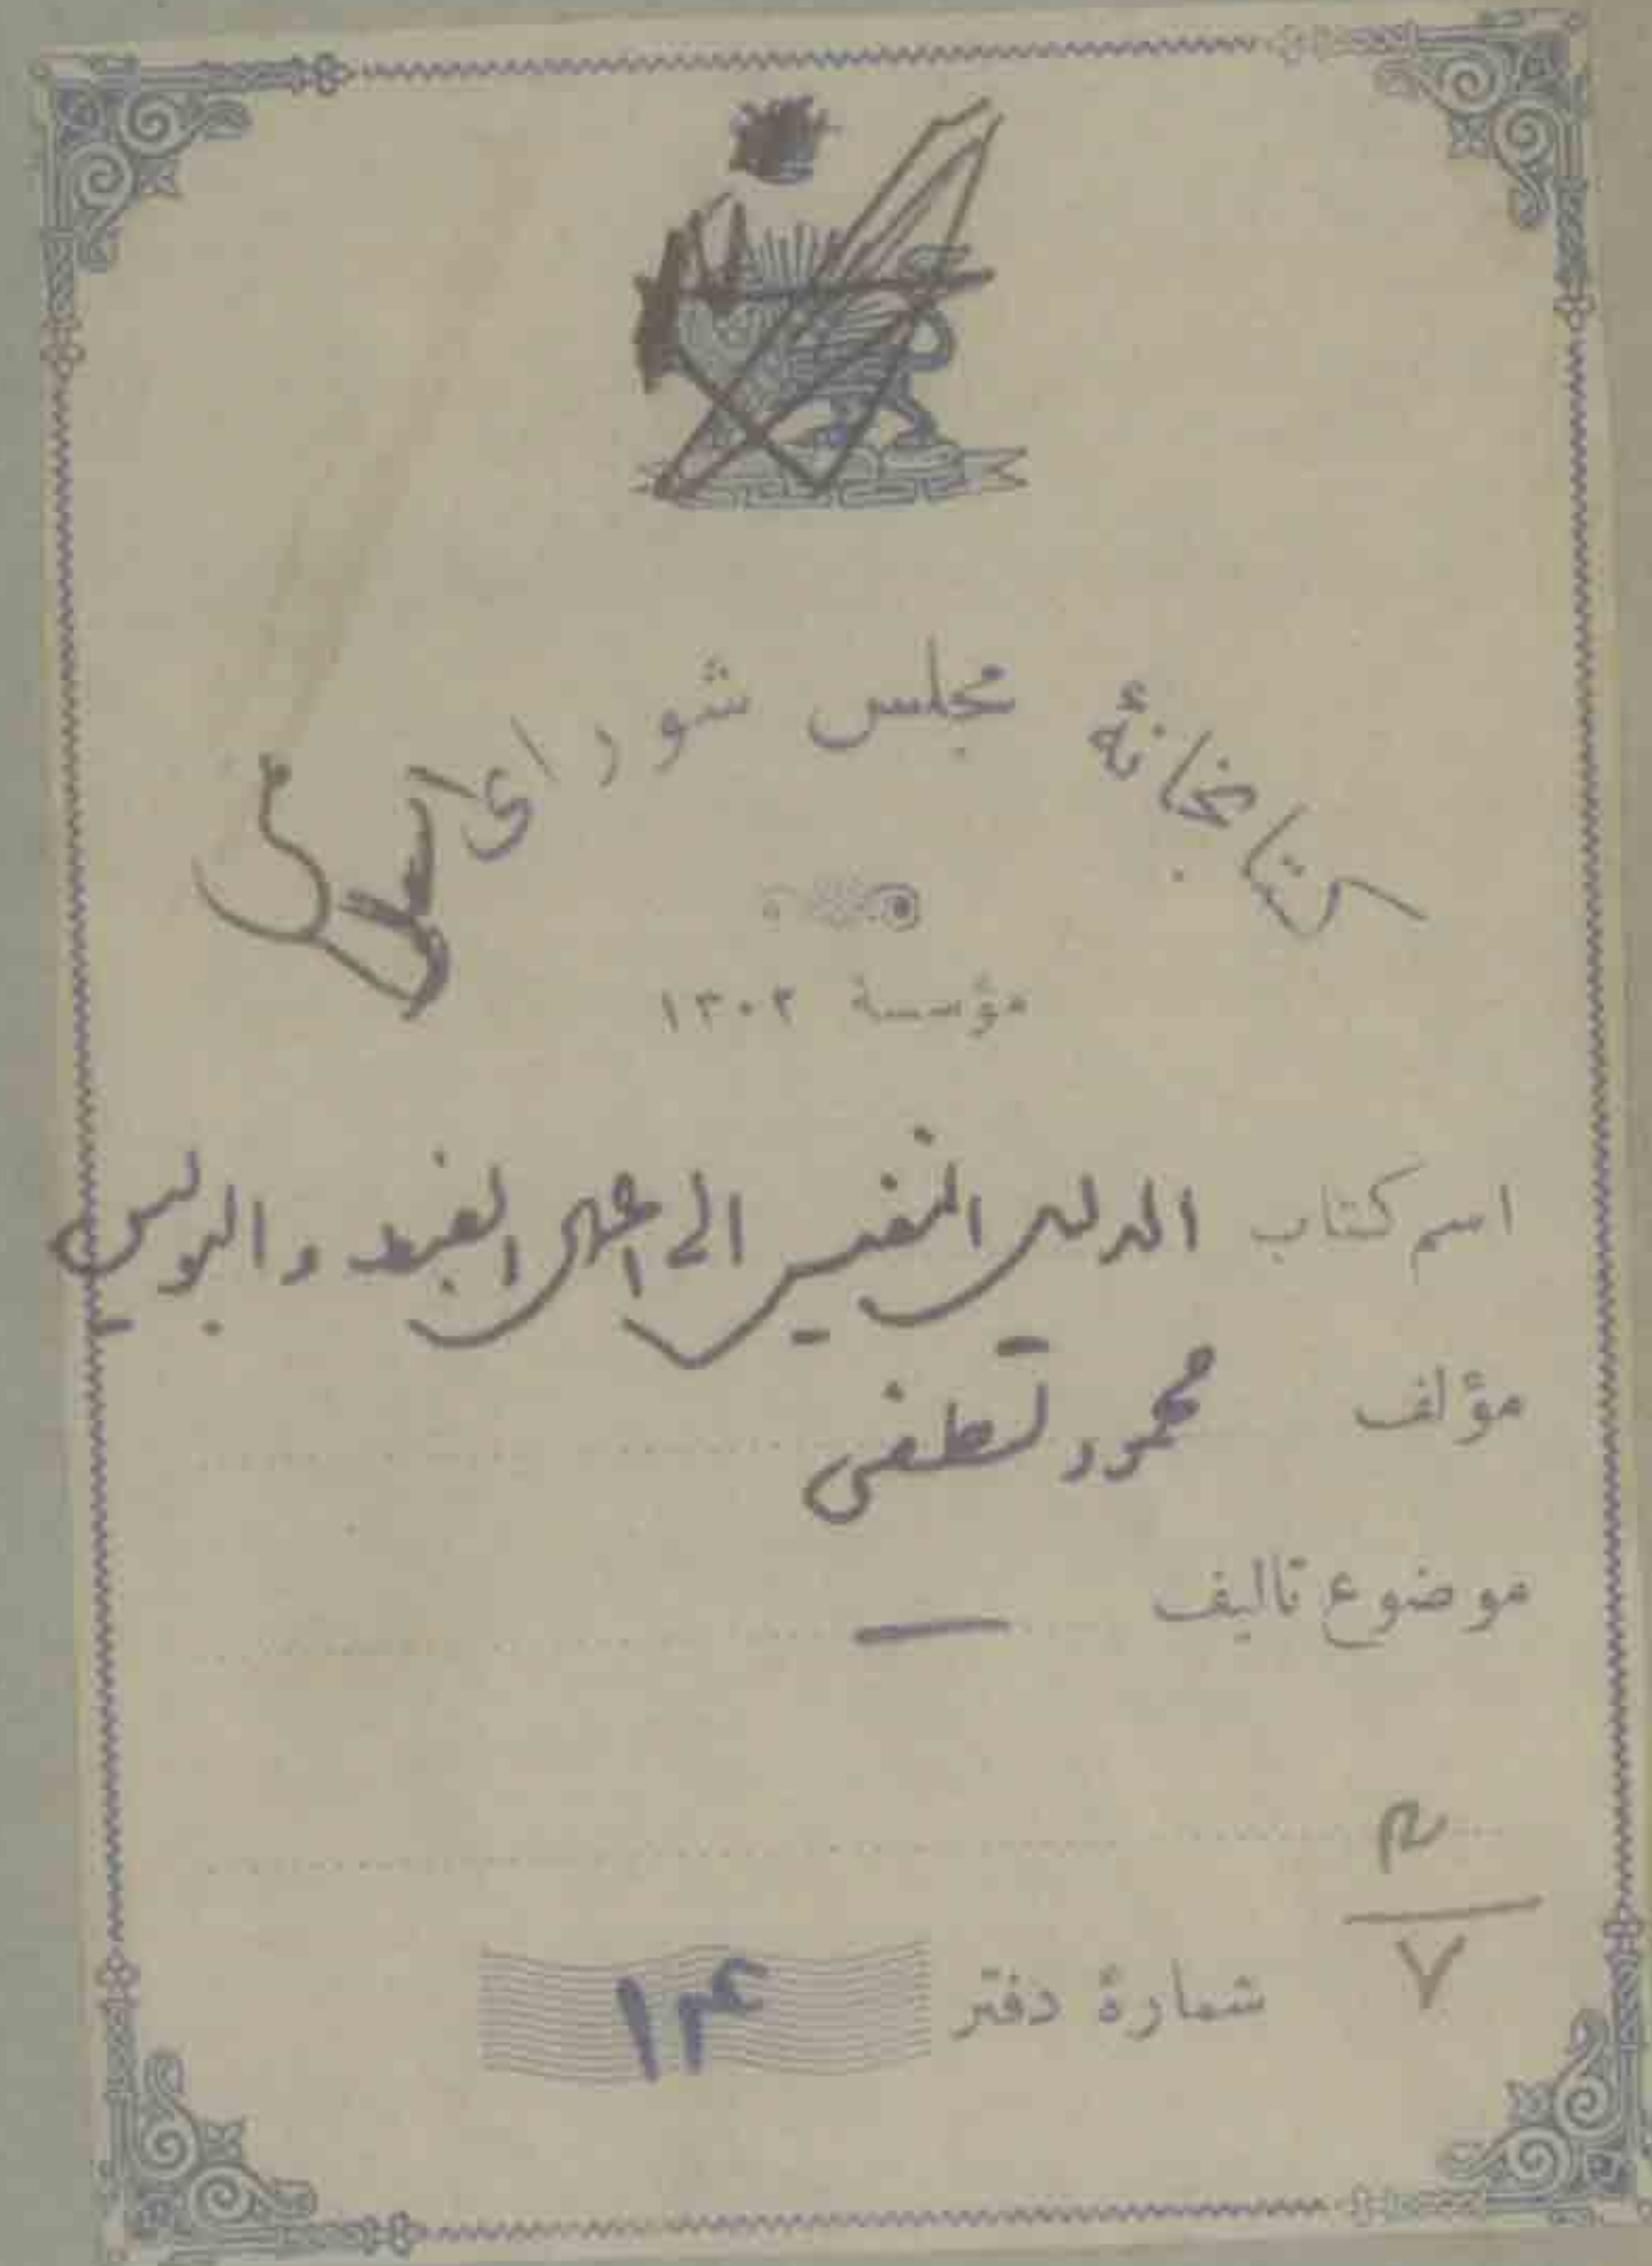 کتابخانهٔ مجلس شورای اسلامی
مؤسسهٔ ۱۳۰۲
اسم کتاب الدلیل النفیس الی اهل الضبط والبولیس
مؤلف محمود لطفی
موضوع تالیف —
۷
شمارهٔ دفتر ۱۴